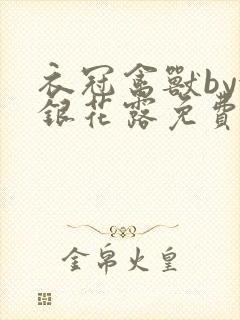 衣冠禽獸by
銀花露免費
金帛火皇